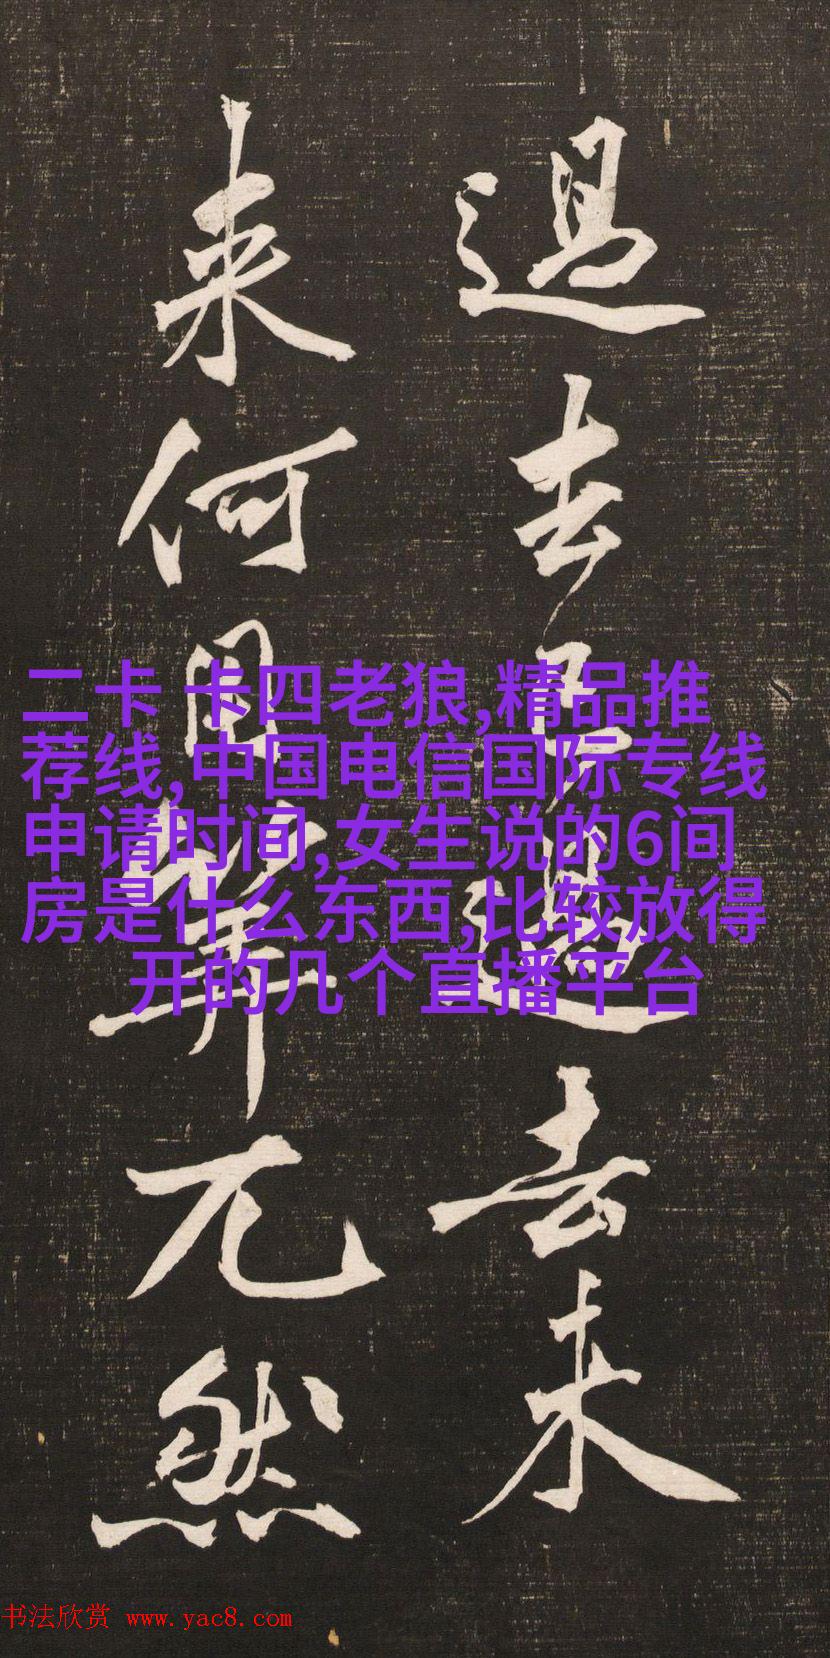 過去已過去未
来何筭兀然
二卡 卡四老狼,精品推
荐线,中国电信国际专线
申请时间,女生说的6间
房是什么东西,比较放得
开的几个直播平台
书法欣赏 www.yac8.com